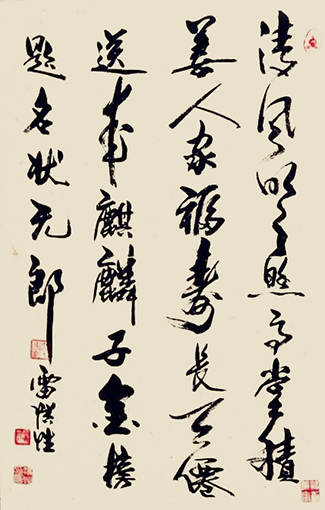 清風明月照高堂積
善人家福壽長天僊
送來麒麟子金榜
題名状元郎
雷